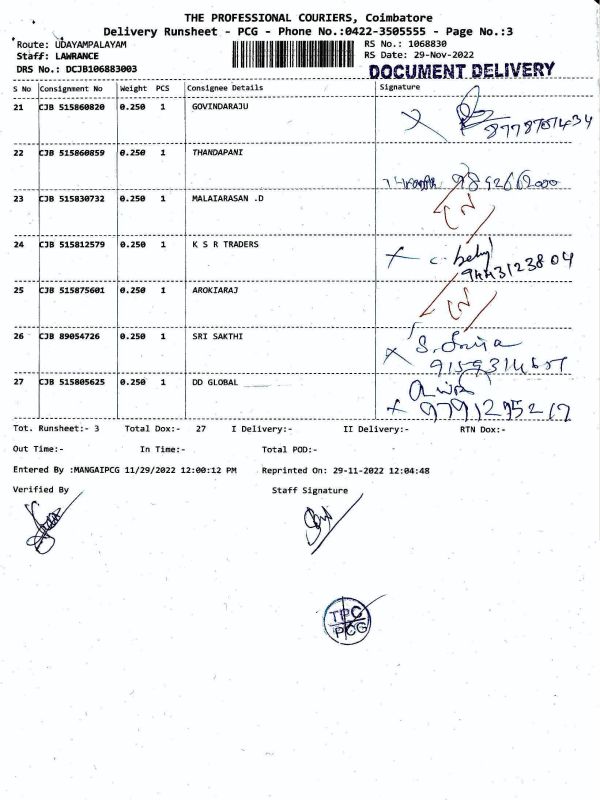 THE PROFESSIONAL COURIERS, Coimbatore
Delivery Runsheet - PCG - Phone No.:0422-3505555 - Page No.:3
Route: UDAYAMPALAYAM RS No.: 1068830
Staff: LAWRANCE RS Date: 29-Nov-2022
DRS No.: DCJB106883003 DOCUMENT DELIVERY
S No Consignment No Weight PCS Consignee Details Signature
21 CJB 515860820 0.250 1 GOVINDARAJU
22 CJB 515860859 0.250 1 THANDAPANI
23 CJB 515830732 0.250 1 MALAIARASAN .D
24 CJB 515812579 0.250 1 K S R TRADERS
9443123804
25 CJB 515875601 0.250 1 AROKIARAJ
26 CJB 89054726 0.250 1 SRI SAKTHI
27 CJB 515805625 0.250 1 DD GLOBAL
9791295217
Tot. Runsheet:- 3 Total Dox:- 27 I Delivery:- II Delivery:- RTN Dox:-
Out Time:- In Time:- Total POD:-
Entered By :MANGAIPCG 11/29/2022 12:00:12 PM Reprinted On: 29-11-2022 12:04:48
Verified By Staff Signature
TPC
PCG